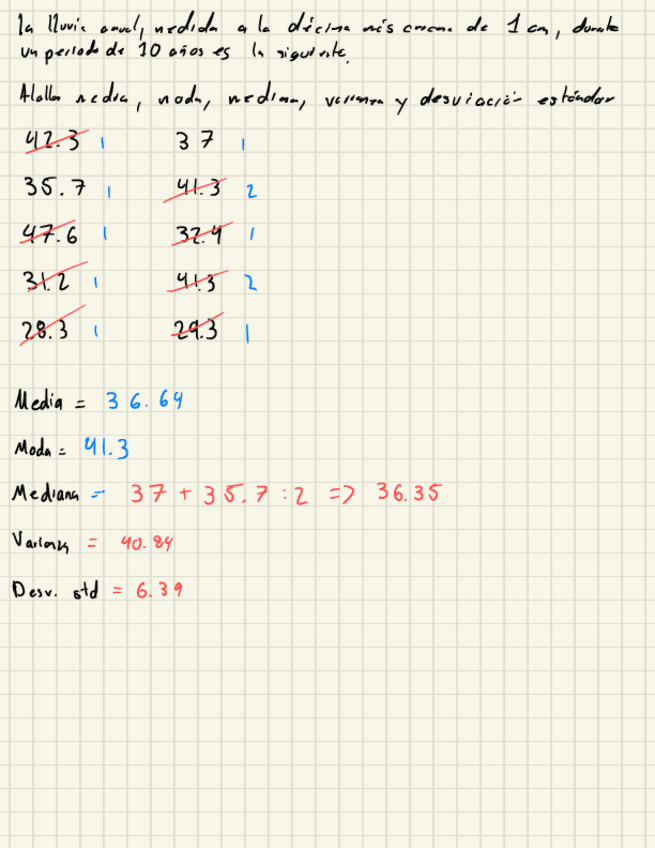 La lluvia anual, medida a la décima más cercana de 1 cm, durante
un periodo de 10 años es la siguiente.
Halla media, moda, mediana, varianza y desviación estándar
42.3 1 37 1
35.7 1 41.3 2
47.6 1 32.4 1
31.2 1 41.3 2
28.3 1 29.3 1
Media = 36.64
Moda = 41.3
Mediana = 37 + 35.7 : 2 => 36.35
Varianza = 40.84
Desv. std = 6.39